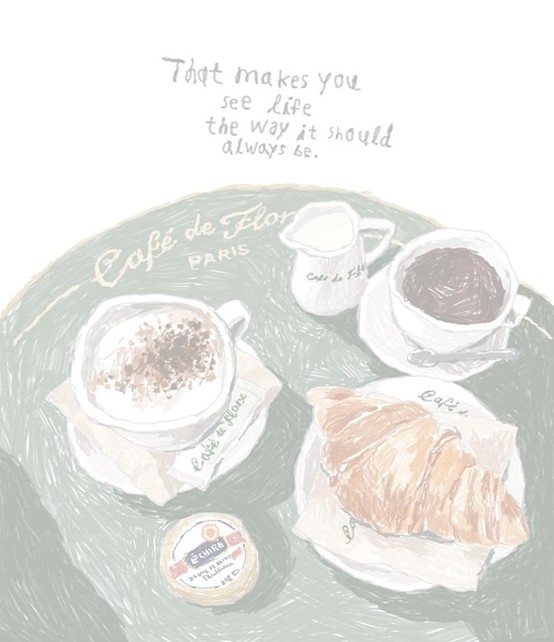 That makes you
see life
the way it should
always be.
Café de Flor
PARIS
Café de
Café de
ÉCHIRÉ